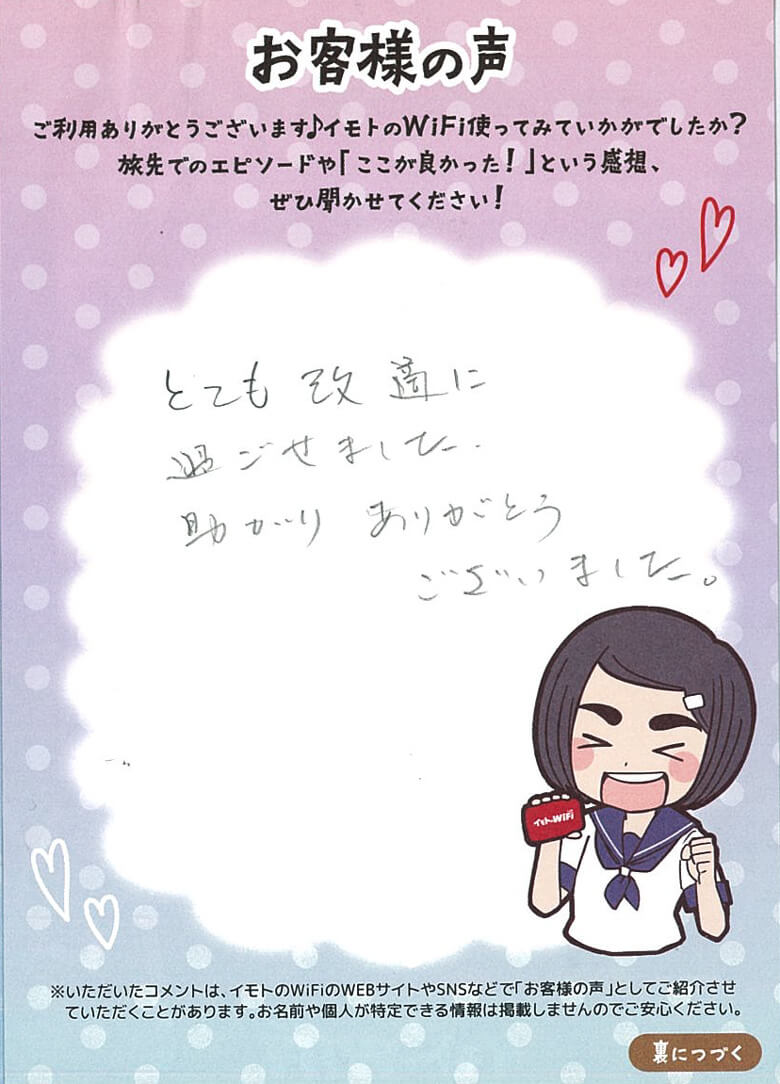 お客様の声
ご利用ありがとうございます♪イモトのWiFi使ってみていかがでしたか?
旅先でのエピソードや「ここが良かった!」という感想、
ぜひ聞かせてください!
とても改適に
過ごせました.
助かり ありがとう
ございました。
イモトのWiFi
※いただいたコメントは、イモトのWiFiのWEBサイトやSNSなどで「お客様の声」としてご紹介させ
ていただくことがあります。お名前や個人が特定できる情報は掲載しませんのでご安心ください。
裏につづく